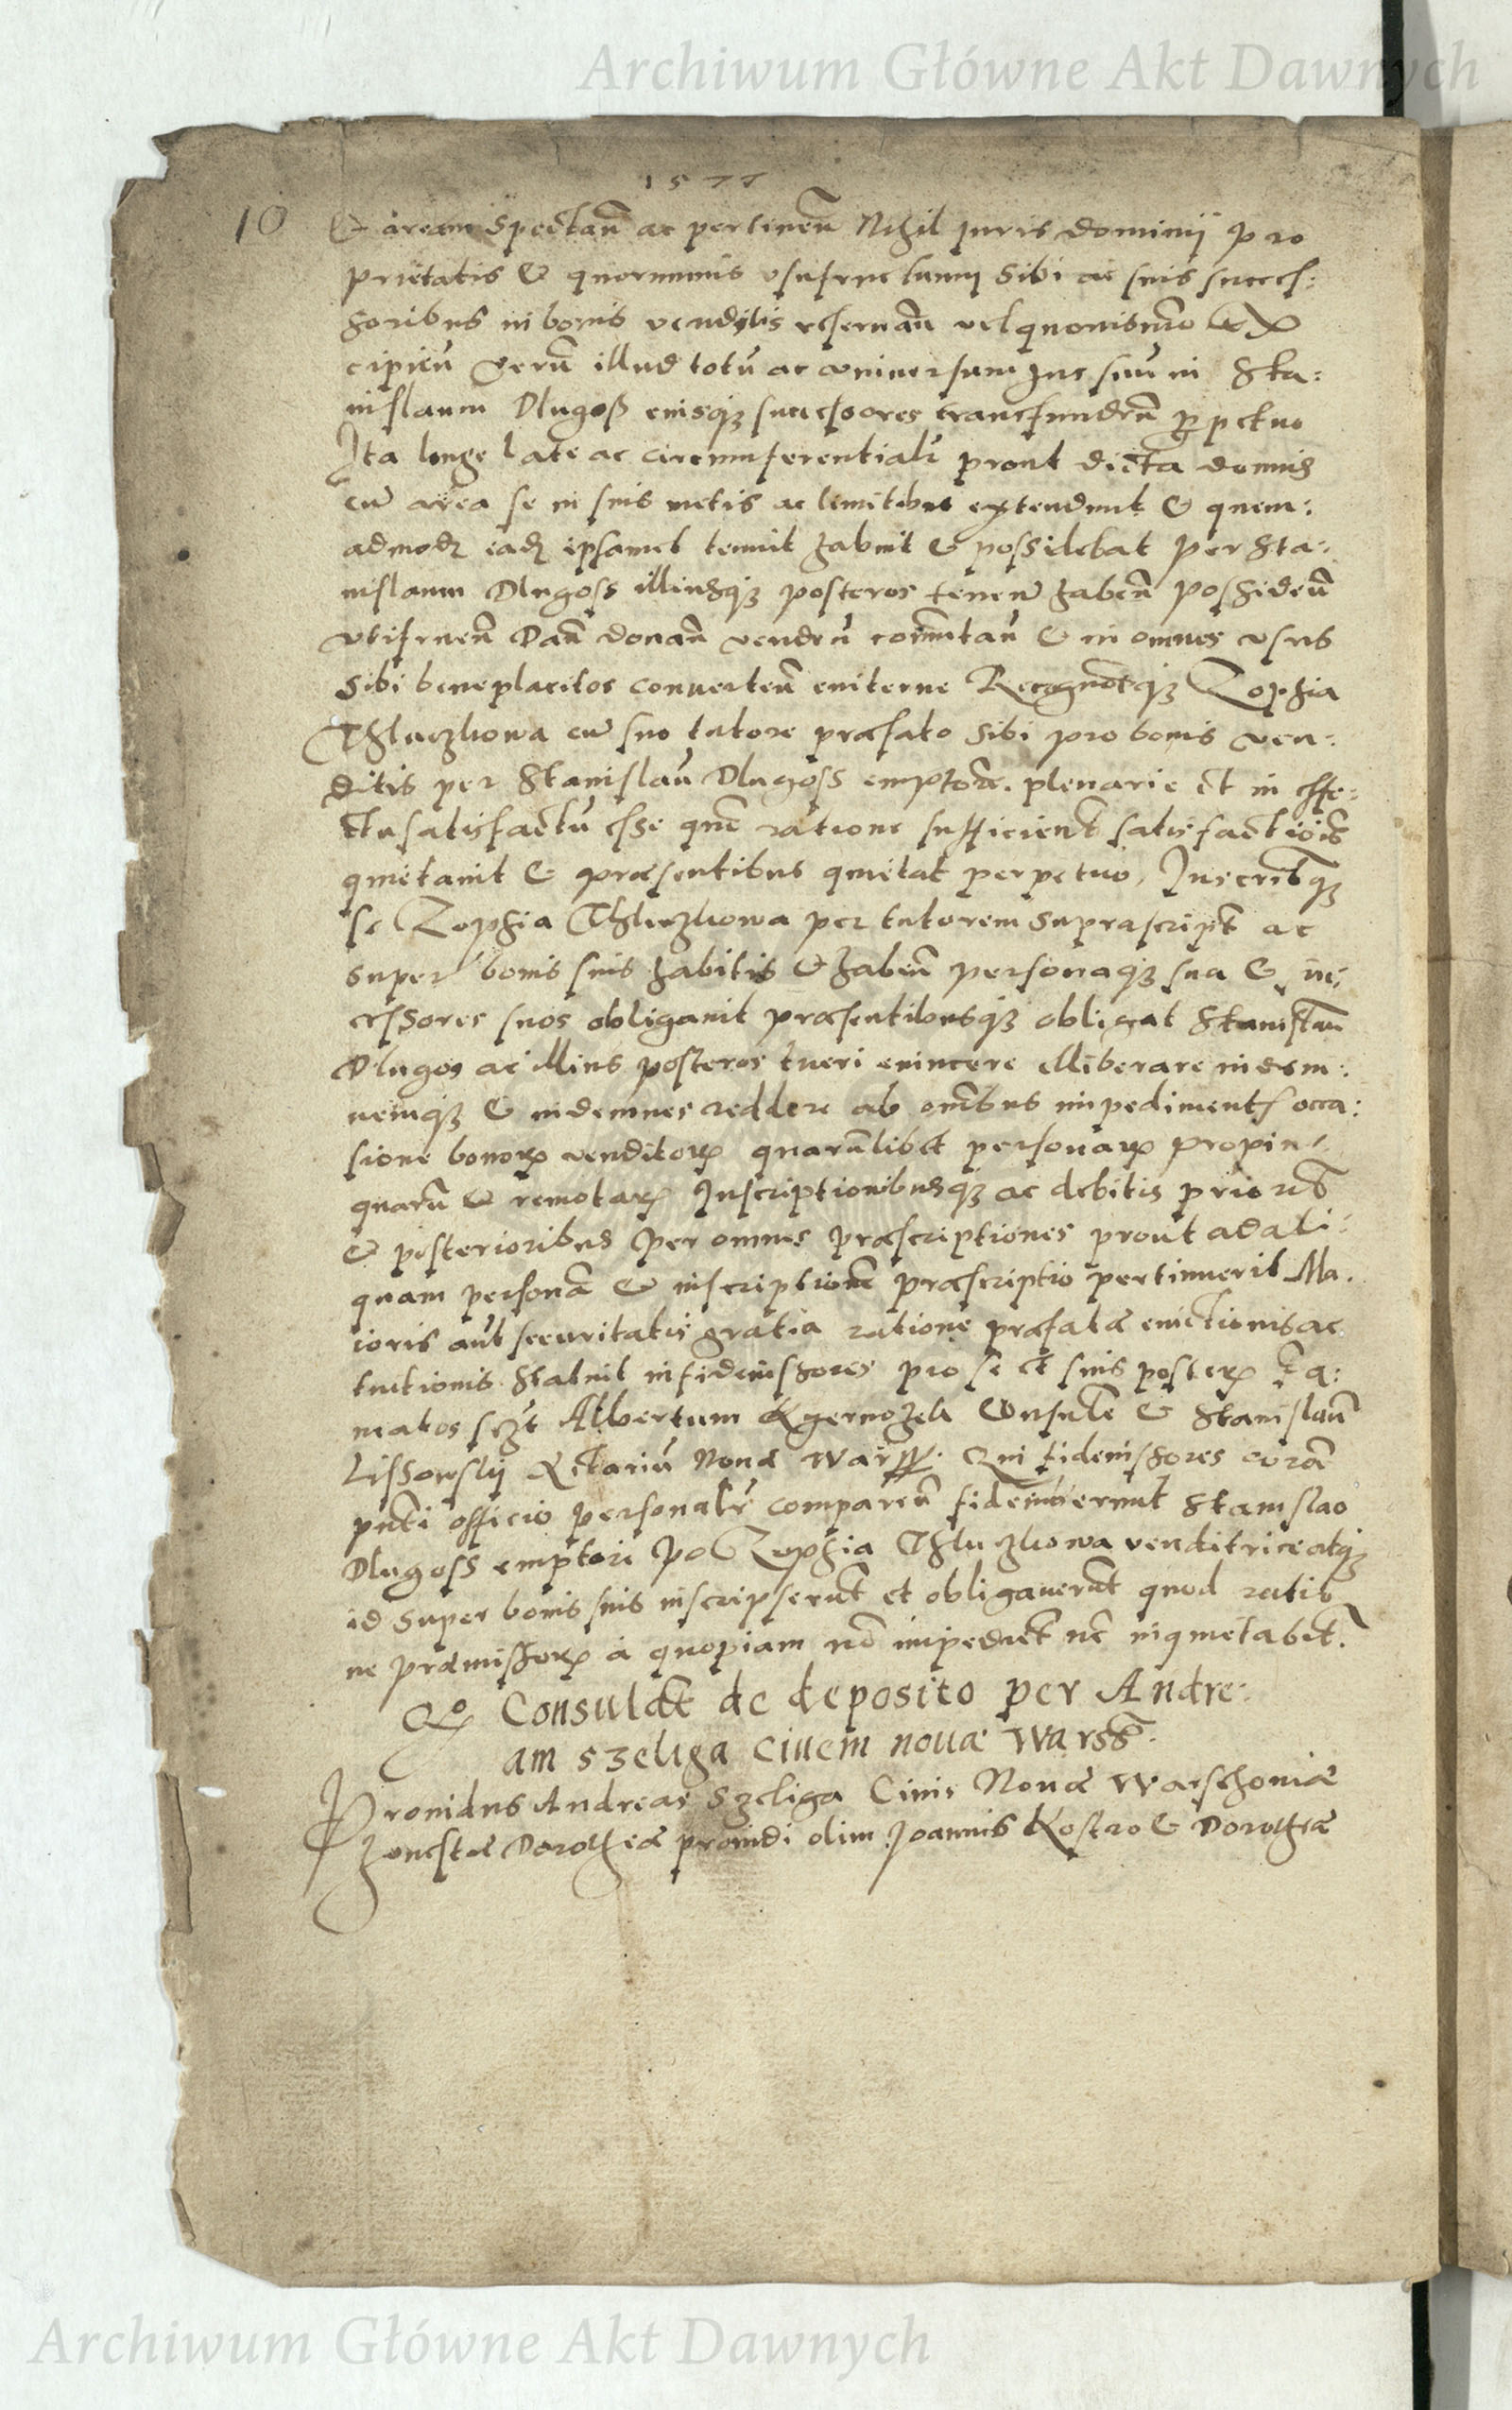 Archiwum Główne Akt Dawnych
1577
10
& aream spectan̄ ac pertinen̄ Nihil Iuris dominij pro
prietatis & quorumuis vsufructuum sibi ac suis succes:
soribus in bonis venditis reseruan̄ vel quouismo͞
cipien̄ verū illud totū ac vniuersum Ius suū in Sta:
nislaum Dlugoß eiusq3 successores transfunden̄ ꝑpetuo
Ita longe late ac circumferentialr̄ prout dicta domus
cū area se in suis metis ac limitibus extendunt & quem:
admodꝫ eadꝫ ipsamet tenuit habuit & possidebat per Sta:
nislaum Dlugoss illiusq3 posteros tenen̄ haben̄ possiden̄
vtifruen̄ Dan̄ donan̄ venden̄ co͞mutan̄ & in omnes vsus
sibi beneplacitos conuerten̄ euiterne Recognotq3 Zophia
Thluczkowa cū suo tutore præfato sibi pro bonis ven:
ditis per Stanislaū Dlugoss emptore͞. plenarie et in effe:
ctu satisfactū esse que͞ ratione sufficient satisfactiois
quietauit & præsentibus quietat perpetuo, Inscribitq3
se Zophia Thluczkowa per tutorem suprascript ac
super bonis suis habitis & haben̄ personaq3 sua &
cessores suos obligauit præsentibusq3 obligat Stanislau͞
Dlugos ac illius posteros tueri euincere & liberare indem:
nemq3 & indemnes reddere ab omībus impediment occa:
sione bonoꝝ venditoꝝ quarūlibet personaꝝ propin:
quarū & remotaꝝ Inscriptionibusq3 ac debitis priorib
& posterioribus per omnes præscriptiones prout ad ali:
quam personā & inscriptione͞ præscriptio pertinuerit Ma:
ioris aut securitatis gratia ratione præfatæ euictionis ac
tuitionis Statuit in fideiussores pro se et suis posteꝝ
Albertum Consule͞ & Stanislaū
Lissowskij Nouæ Wars. Qui fideiussores corā
pn̄ti officio personalr̄ comparen̄ fideiusserunt Stanislao
Dlugoss emptori pro Zophia Thluczkowa venditrice atq3
id super bonis suis inscripserūt et obligauerūt quod ratio
ne præmissoꝝ a quopiam nō impediet nec inquietabit.
Consulat de deposito per Andre:
am Szeliga Ciuem nouæ Warss.
Prouidus Andreas Szeliga Ciuis Nouæ Warschouiæ
honestæ Dorotheæ prouidi olim Joannis Kostro & Dorotheæ
Archiwum Główne Akt Dawnych